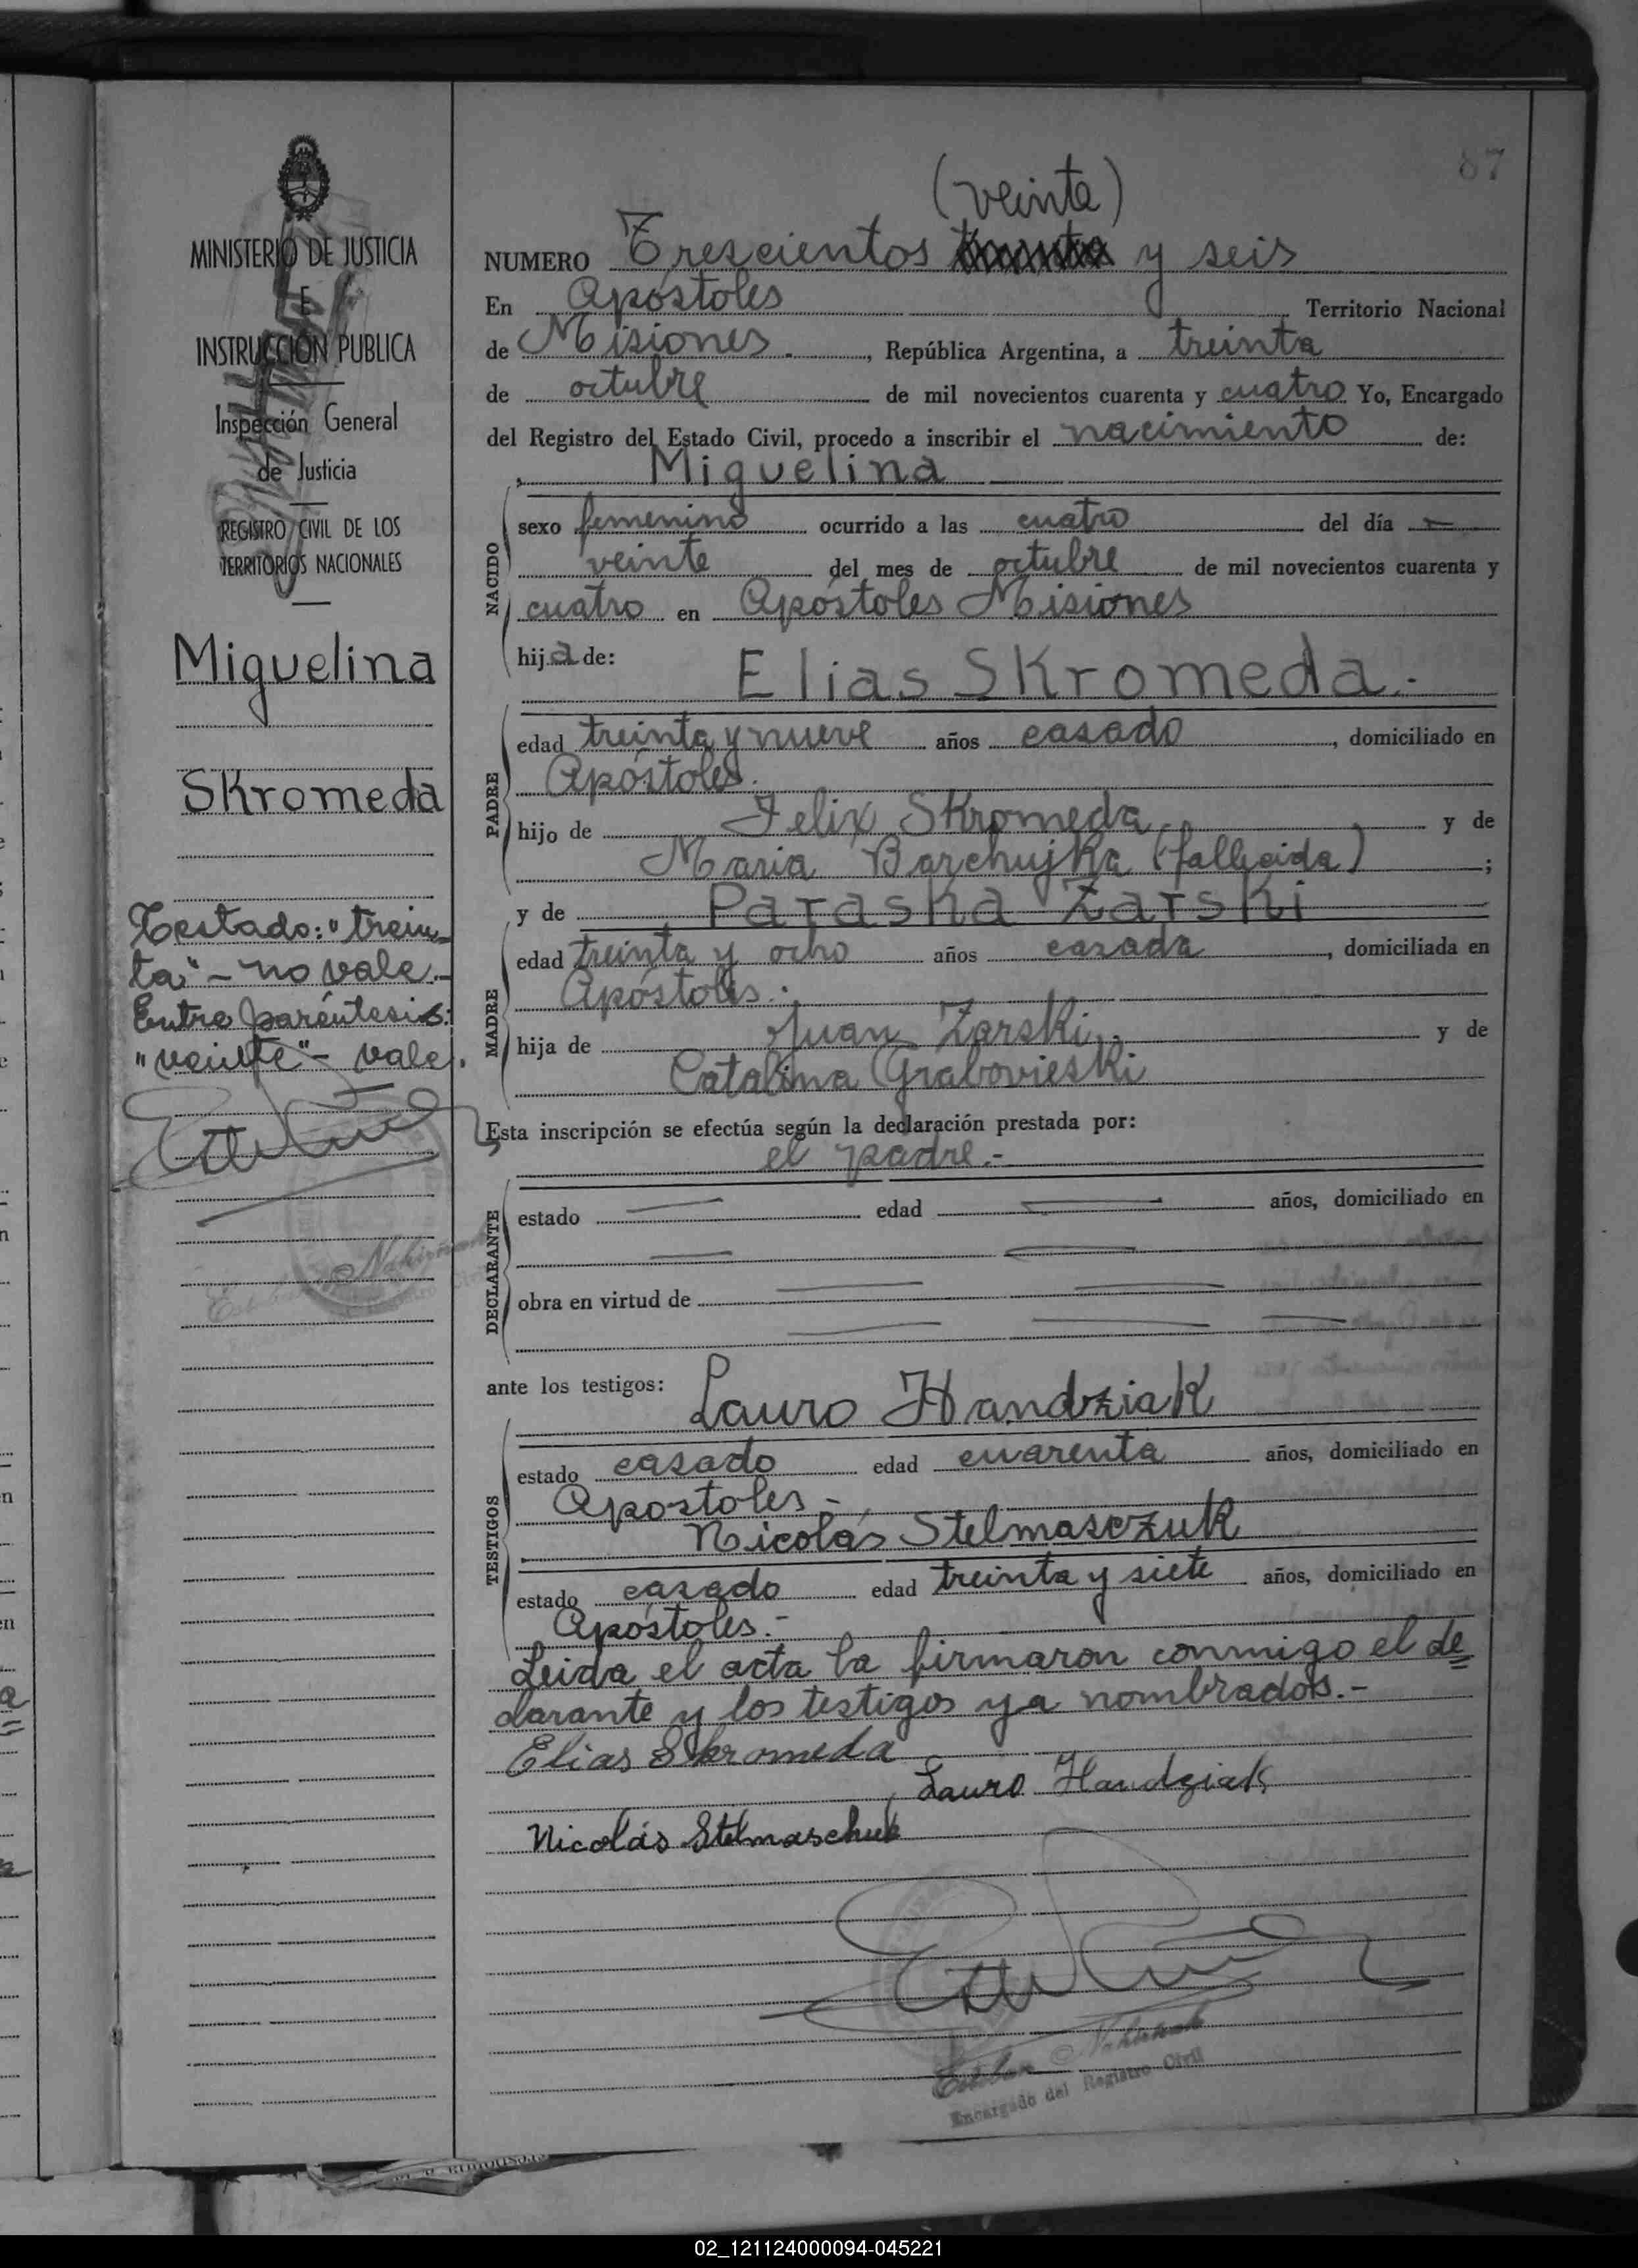 87
MINISTERIO DE JUSTICIA
E
INSTRUCCION PUBLICA
Inspección General
de Justicia
REGISTRO CIVIL DE LOS
TERRITORIOS NACIONALES
Miguelina
Skromeda
Testado: "trein-
ta" - no vale.-
Entre paréntesis:
"veinte" - vale.
(veinte)
NUMERO Trescientos treinta y seis
En Apóstoles Territorio Nacional
de Misiones. , República Argentina, a treinta
de octubre de mil novecientos cuarenta y cuatro Yo, Encargado
del Registro del Estado Civil, procedo a inscribir el nacimiento de:
Miguelina
NACIDO
sexo femenino ocurrido a las cuatro del día
veinte del mes de octubre de mil novecientos cuarenta y
cuatro en Apóstoles Misiones
hija de:
Elias Skromeda.-
PADRE
edad treinta y nueve años casado , domiciliado en
Apóstoles.
hijo de Felix Skromeda y de
Maria Barchujka (fallecida) ;
y de Paraska Zarski
MADRE
edad treinta y ocho años casada , domiciliada en
Apóstoles.
hija de Juan Zarski. y de
Catalina Grabovieski
Esta inscripción se efectúa según la declaración prestada por:
el padre.-
DECLARANTE
estado edad años, domiciliado en
obra en virtud de
ante los testigos: Lauro Handziak
TESTIGOS
estado casado edad cuarenta años, domiciliado en
Apostoles -
Nicolás Stelmasczuk
estado casado edad treinta y siete años, domiciliado en
Apóstoles.-
Leida el acta la firmaron conmigo el de
clarante y los testigos ya nombrados.-
Elias Skromeda
Lauro Handziak
Nicolás Stelmaschuk
Esteban Nahirnak
Encargado del Registro Civil
02_121124000094-045221